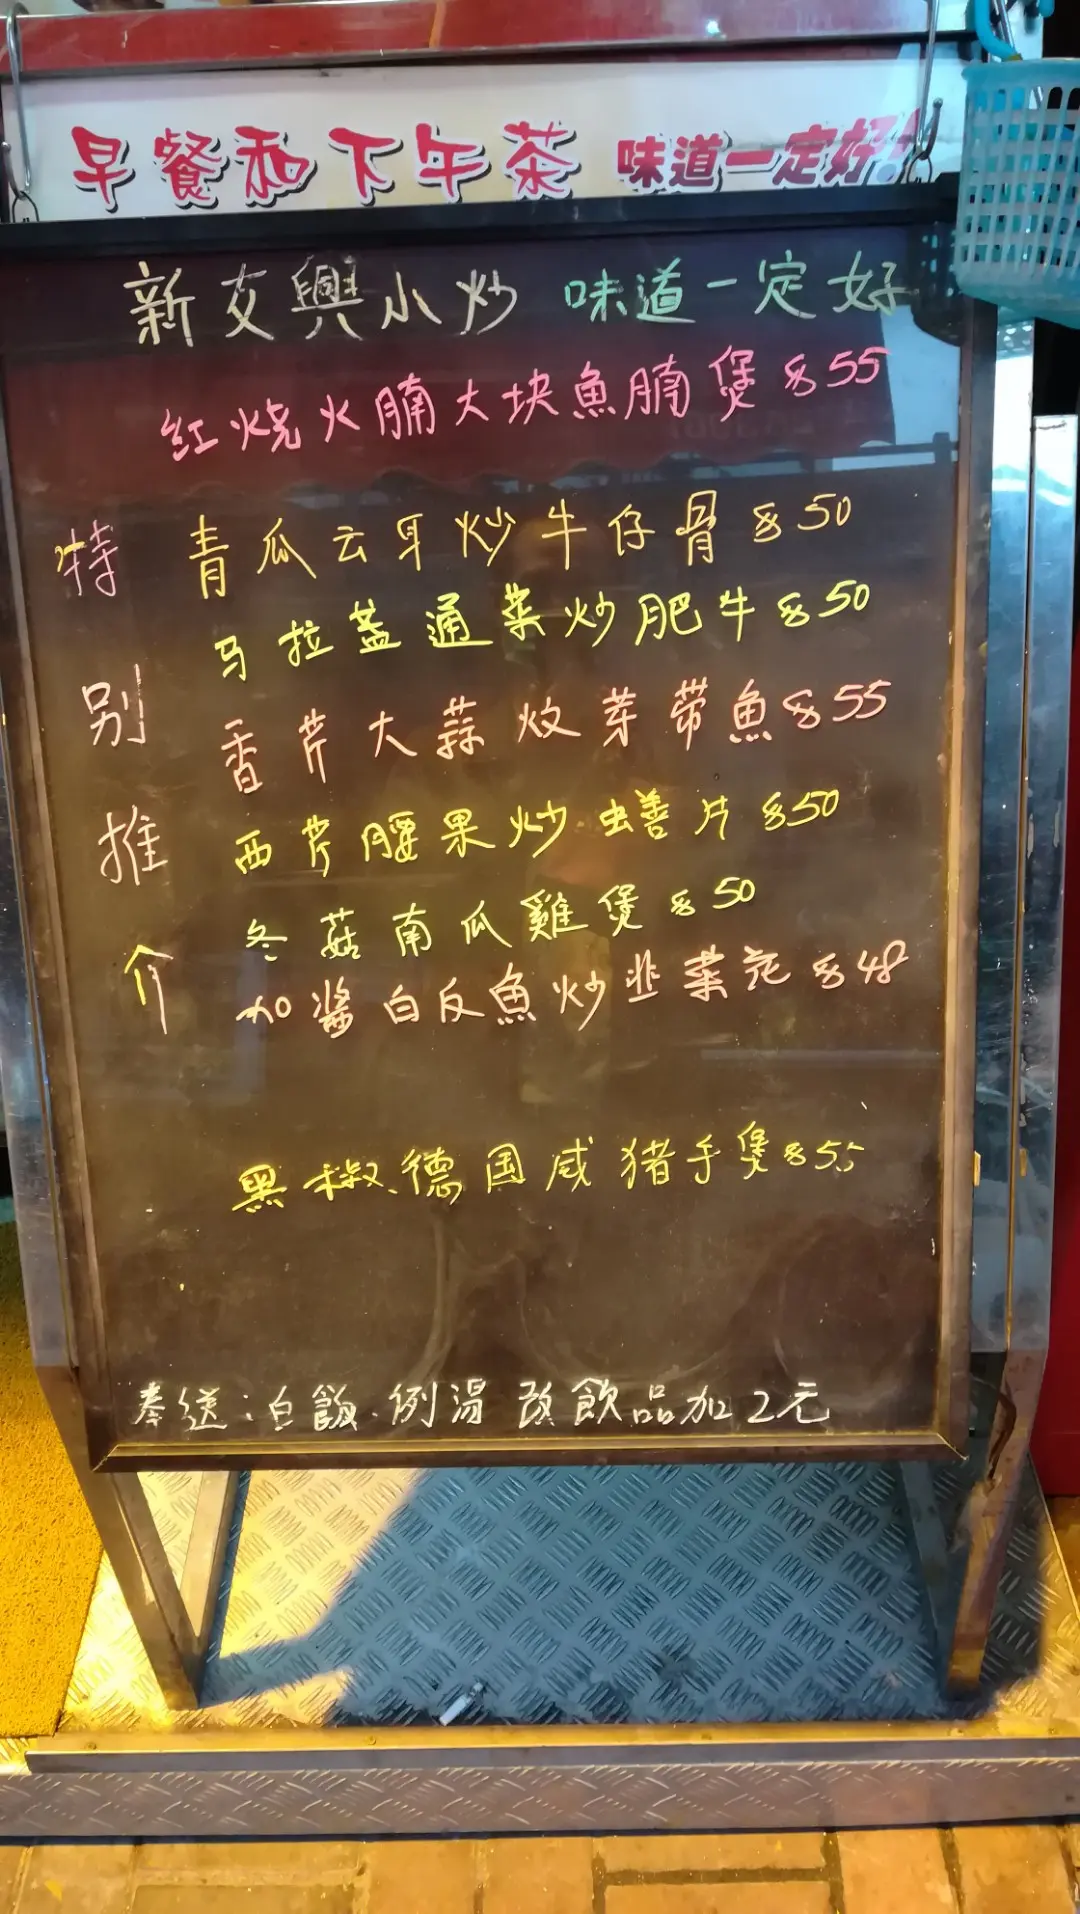 早餐和下午茶 味道一定好!
新友興小炒 味道一定好
红烧火腩大块魚腩煲 $55
特别推介
青瓜云耳炒牛仔骨 $50
马拉盏通菜炒肥牛 $50
香芹大蒜炆芽带魚 $55
西芹腰果炒蟮片 $50
冬菇南瓜雞煲 $50
加醬白反魚炒韭菜花 $48
黑椒德国咸猪手煲 $55
奉送:白飯.例湯 改飲品加2元